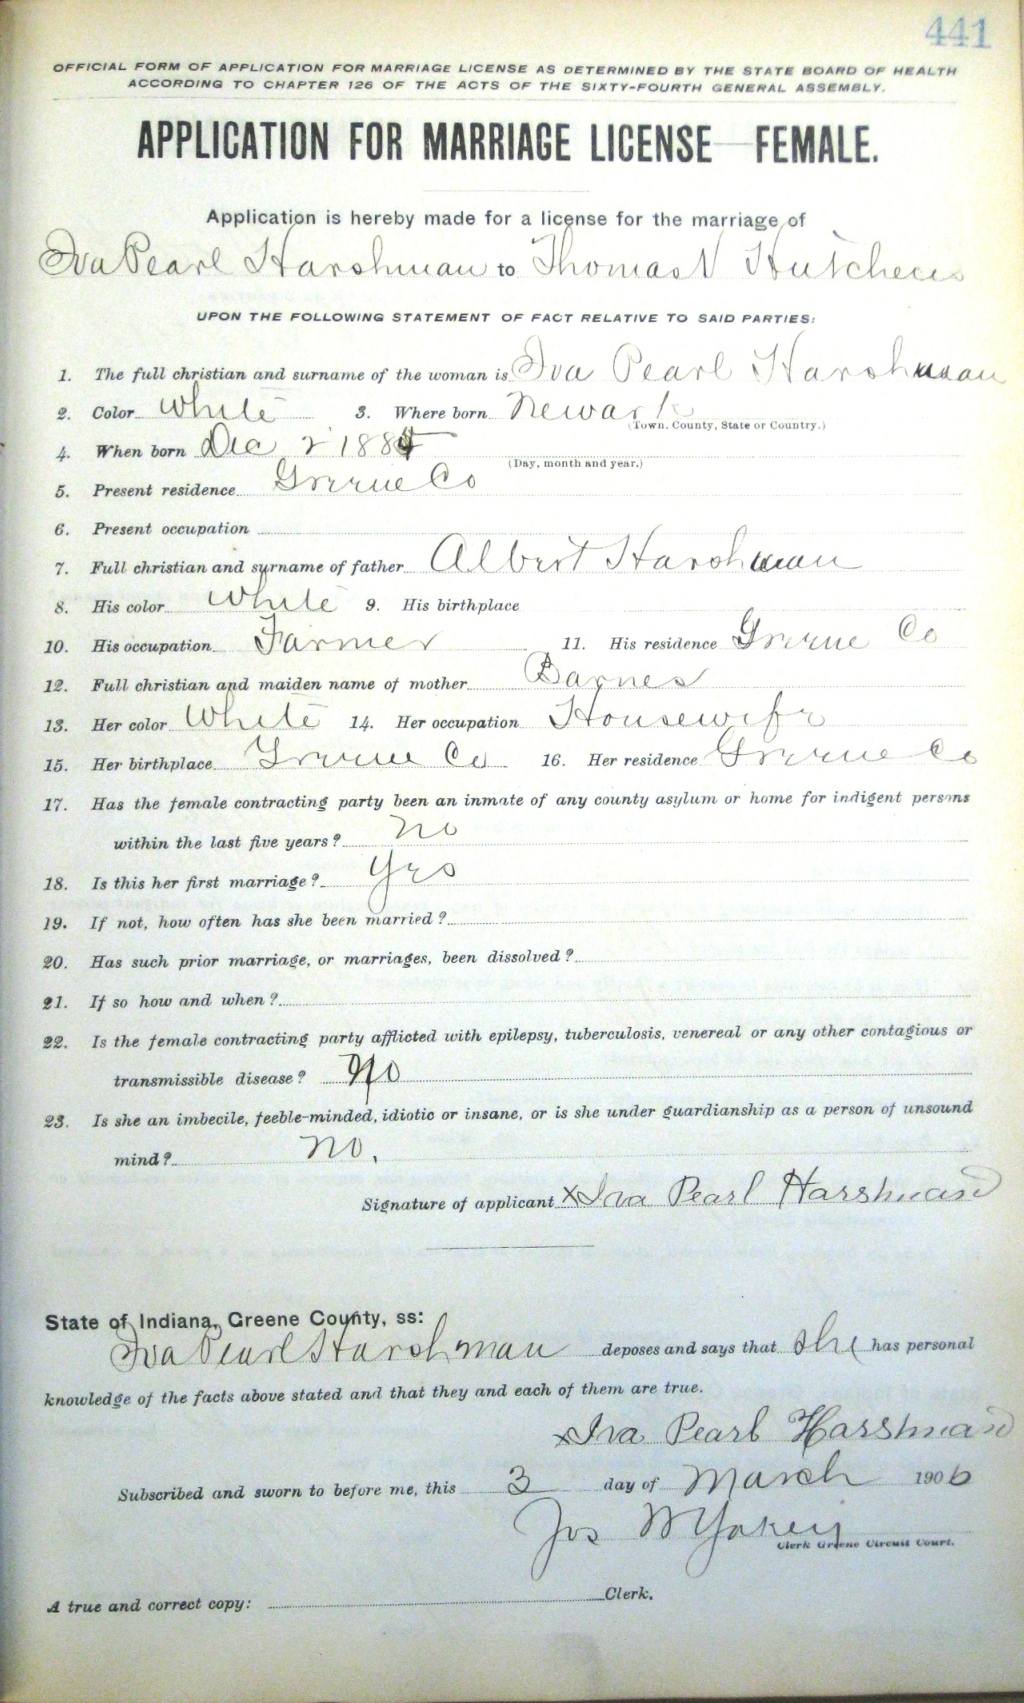 441
OFFICIAL FORM OF APPLICATION FOR MARRIAGE LICENSE AS DETERMINED BY THE STATE BOARD OF HEALTH
ACCORDING TO CHAPTER 126 OF THE ACTS OF THE SIXTY-FOURTH GENERAL ASSEMBLY.
APPLICATION FOR MARRIAGE LICENSE FEMALE.
Application is hereby made for a license for the marriage of
Iva Pearl Harshman to Thomas N Hutchens
UPON THE FOLLOWING STATEMENT OF FACT RELATIVE TO SAID PARTIES:
1. The full christian and surname of the woman is Iva Pearl Harshman
2. Color White 3. Where born Newark
(Town, County, State or Country.)
4. When born Dec 2 188
(Day, month and year.)
5. Present residence Greene Co
6. Present occupation
7. Full christian and surname of father Albert Harshman
8. His color White 9. His birthplace
10. His occupation Farmer 11. His residence Greene Co
12. Full christian and maiden name of mother Barnes
13. Her color White 14. Her occupation Housewife
15. Her birthplace Greene Co 16. Her residence Greene Co
17. Has the female contracting party been an inmate of any county asylum or home for indigent persons
within the last five years? no
18. Is this her first marriage? Yes
19. If not, how often has she been married?
20. Has such prior marriage, or marriages, been dissolved?
21. If so how and when?
22. Is the female contracting party afflicted with epilepsy, tuberculosis, venereal or any other contagious or
transmissible disease? No
23. Is she an imbecile, feeble-minded, idiotic or insane, or is she under guardianship as a person of unsound
mind? no.
Signature of applicant x Iva Pearl Harshman
State of Indiana, Greene County, ss:
Iva Pearl Harshman deposes and says that she has personal
knowledge of the facts above stated and that they and each of them are true.
x Iva Pearl Harshman
Subscribed and sworn to before me, this 3 day of March 1906
Jos W Yakey
Clerk Greene Circuit Court.
A true and correct copy: Clerk.